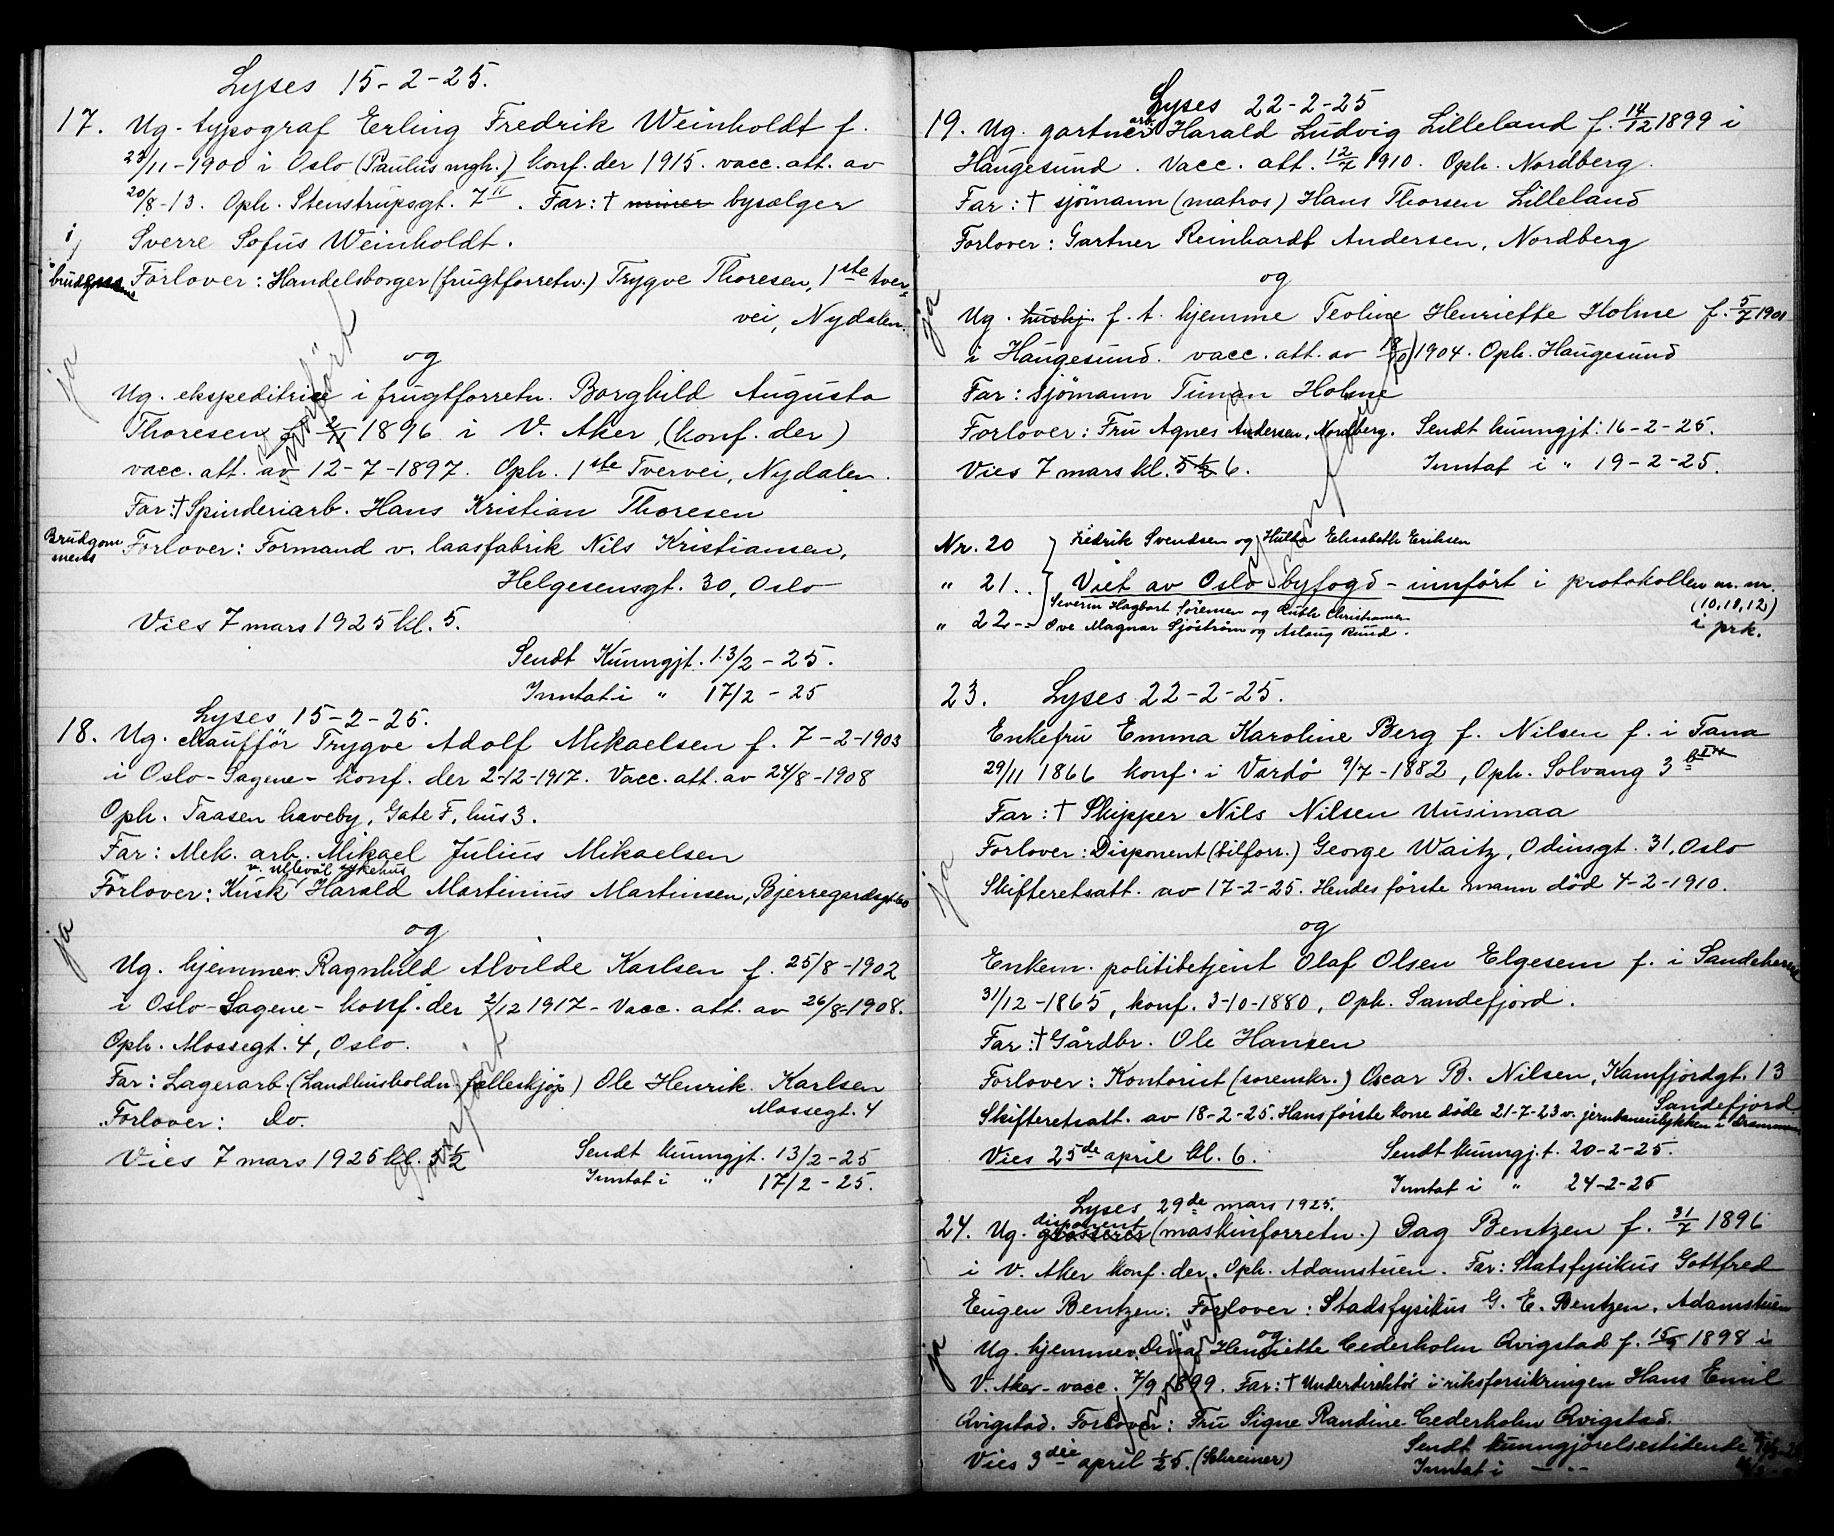 Lyses 15-2-25.
17. Ug. typograf Erling Fredrik Weinholdt f.
23/11-1900 i Oslo (Paulus mgh.) konf. der 1915. vacc. att. av
20/8-13. Oph. Stenstrupsgt. 7 II. Far: † miner bysælger
Sverre Sofus Weinholdt.
Forlover: Handelsborger (frugtforretn.) Trygve Thoresen, 1ste tver-
vei, Nydalen.
ja
og
Ug. ekspeditrice i frugtforretn. Borghild Augusta
Thoresen 1896 i V. Aker, (konf. der)
vacc. att. av 12-7-1897. Oph. 1ste Tvervei, Nydalen.
Far: † Spinderiarb. Hans Kristian Thoresen
Brudgom
mens
Forlover: Formand v. laasfabrik Nils Kristiansen,
Helgesensgt. 30, Oslo
Vies 7 mars 1925 kl. 5.
Sendt Kunngjt. 13/2-25.
Inntat i " 17/2-25
innført
Lyses 15-2-25.
18. Ug. chauffør Trygve Adolf Mikaelsen f. 7-2-1903
i Oslo-Sagene- konf. der 2-12-1917. Vacc. att. av 24/8-1908
Oph. Taasen haveby, Gate F, hus 3.
Far: Mek. arb. Mikael Julius Mikaelsen
v. Ullevål sykehus
Forlover: Kusk Harald Martinius Martinsen, Bjerregardsgt. 60
ja
og
Ug. hjemmev. Ragnhild Alvilde Karlsen f. 25/8-1902
i Oslo-Sagene- konf. der 2/12 1917- Vacc. att. av 26/8-1908.
Oph. Mossegt. 4, Oslo.
Far: Lagerarb. (Landhusholdn. felleskjøp) Ole Henrik Karlsen
Mossegt. 4
Forlover: Do.
Vies 7 mars 1925 kl. 5½
Sendt kunngjt. 13/2-25
Inntat i " 17/2-25.
innført
Lyses 22-2-25
19. Ug. gartnerarb. Harald Ludvig Lilleland f. 14/12 1899 i
Haugesund. Vacc. att. 12/7 1910. Oph. Nordberg.
Far: † sjømann (matros) Hans Thorsen Lilleland
Forlover: Gartner Reinhardt Andersen, Nordberg
ja
og
Ug. hushj. f. t. hjemme Teoline Henriette Holme f. 5/7 1901
i Haugesund. vacc. att. av 1904. Oph. Haugesund
Far: sjømann Timan Holme
Forlover: Fru Agnes Andersen, Nordberg. Sendt kunngjt. 16-2-25.
Vies 7 mars kl. 5½ 6. Inntat i " 19-2-25.
innført
Nr. 20 Fredrik Svendsen og Hulda Elisabeth Eriksen
" 21.. Viet av Oslo byfogd - innført i protokollen m. nr.
(10, 11, 12)
i prk.
Severin Hagbart Sørensen og Ruth Christiansen
" 22-- Ove Magnar Sjøstrøm og Aslaug Ruud.
23. Lyses 22-2-25.
Enkefru Emma Karoline Berg f. Nilsen f. i Tana
29/11 1866 konf. i Vardø 9/7-1882, Oph. Solvang 3
Far: † Skipper Nils Nilsen Uusimaa
Forlover: Disponent (bilforr.) George Waitz, Odinsgt. 31, Oslo
Skifteretsatt. av 17-2-25. Hendes første mann død 4-2-1910.
ja
og
Enkem. politibetjent Olaf Olsen Elgesem f. i Sandeherred
31/12-1865, konf. 3-10-1880, Oph. Sandefjord.
Far: † Gårdbr. Ole Hansen
Forlover: Kontorist (sorenskr.) Oscar B. Nilsen, Kamfjordgt. 13
Sandefjord.
Skifteretsatt. av 18-2-25. Hans første kone døde 21-7-23 v. jernbaneulykken i Drammen
Vies 25de april kl. 6. Sendt kunngj.t. 20-2-25.
Inntat i " 24-2-25
Lyses 29de mars 1925.
disponent
24. Ug. grosserer (maskinforretn.) Dag Bentzen f. 31/7 1896
i V. Aker konf. der. Oph. Adamstuen. Far: Statsfysikus Gottfred
Eugen Bentzen. Forlover: Stadsfysikus G. E. Bentzen, Adamstuen
og
ja
Ug. hjemmev. Dina Henriette Cederholm Qvigstad f. 15/9 1898 i
V. Aker- vacc. 7/9 1899. Far: † Underdirektør i riksforsikringen Hans Emil
Qvigstad. Forlover: Fru Signe Randine Cederholm Qvigstad.
Vies 3die april ½5. (Schreiner) Sendt kunngjørelsestidende
Inntat i
innført